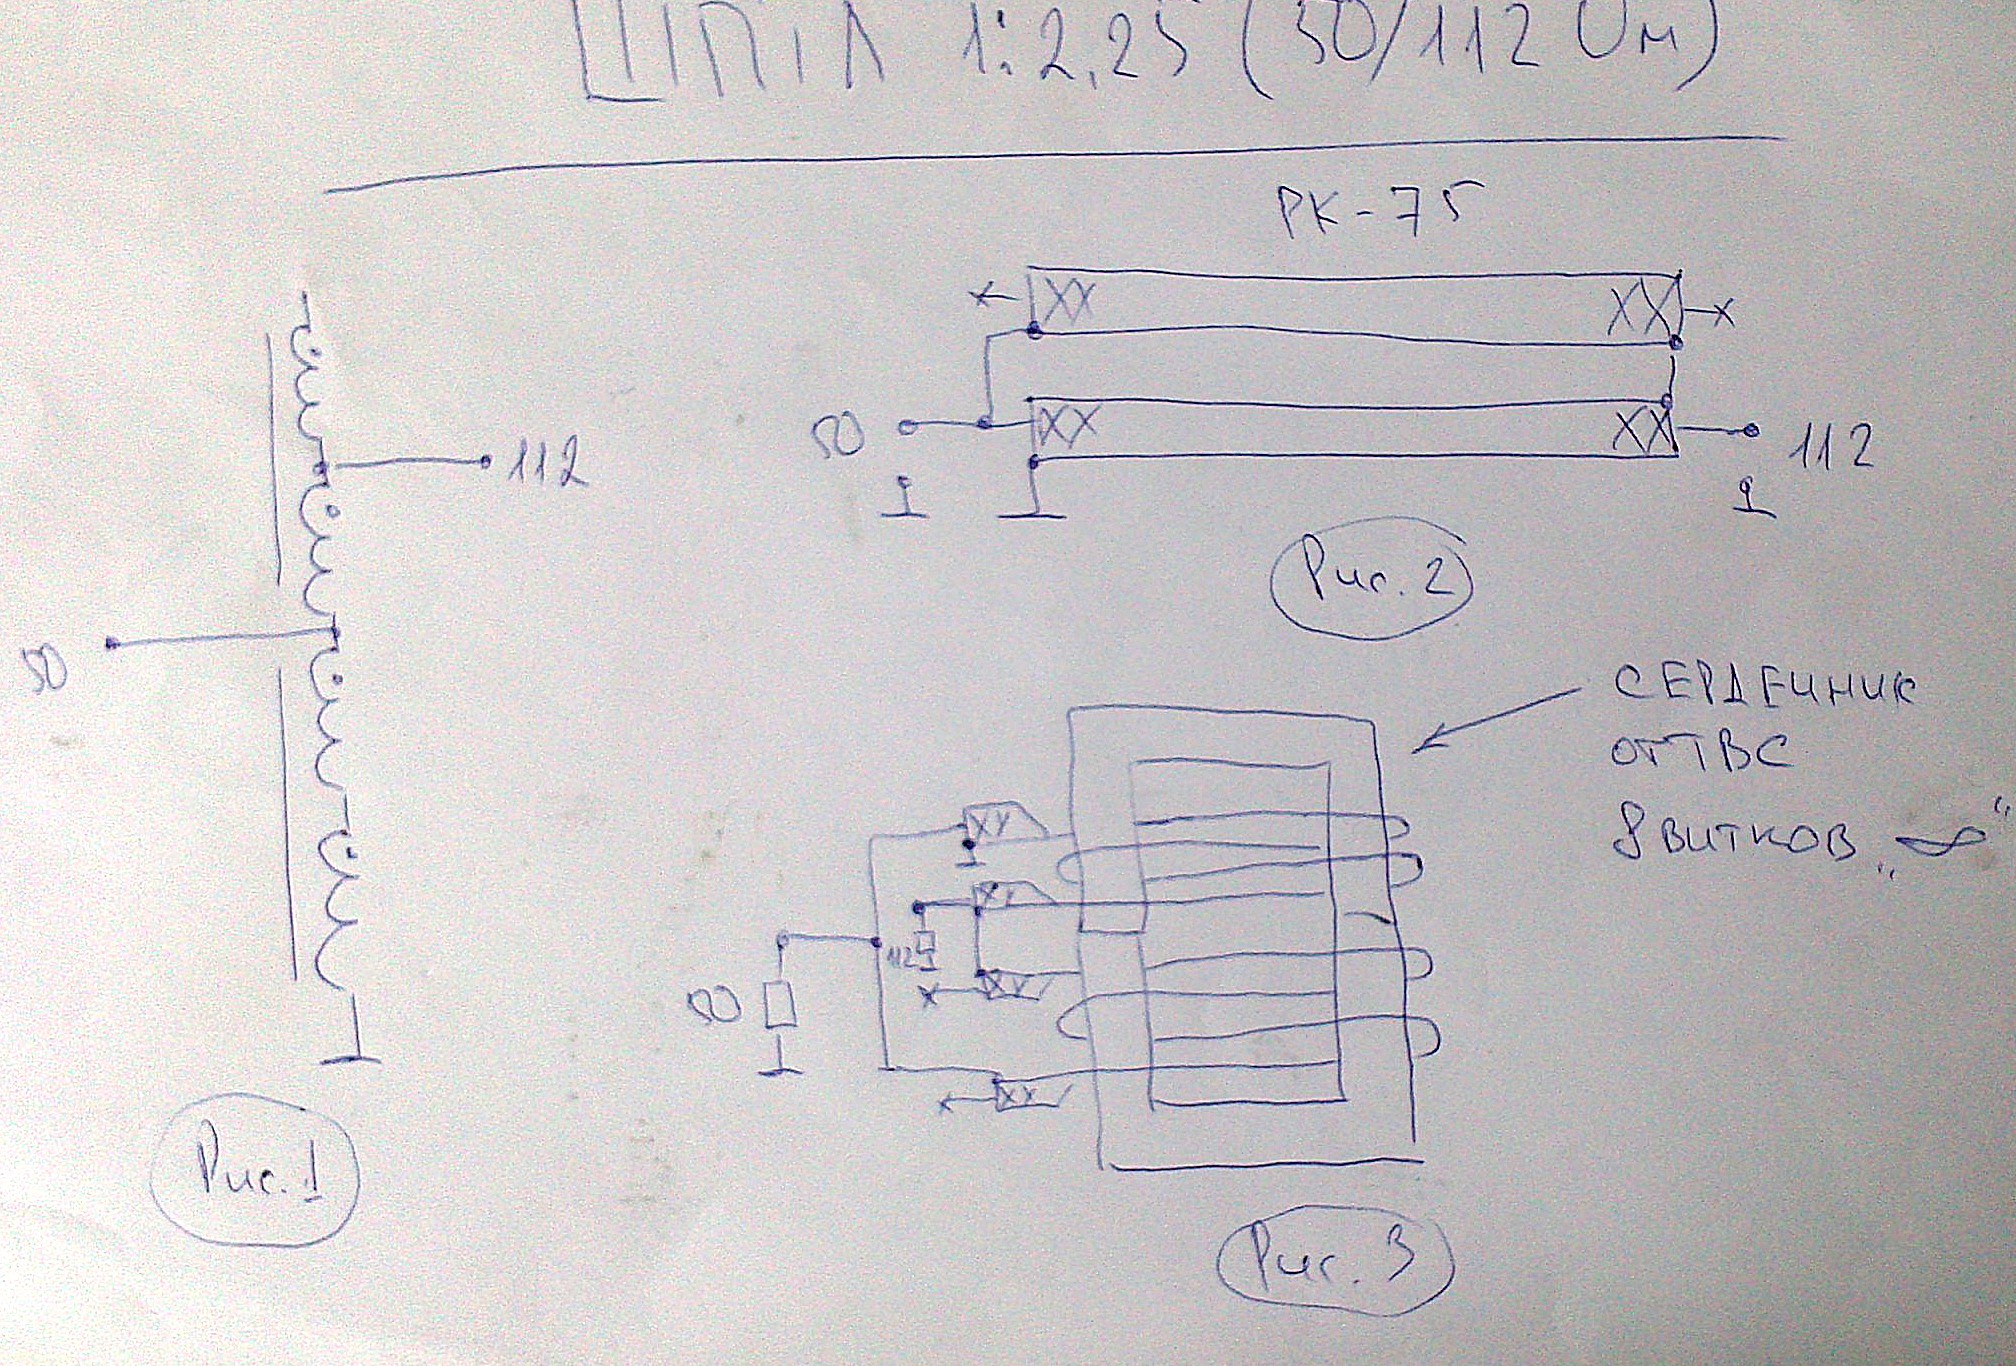 ШПТЛ 1:2,25 (50/112 Ом)
РК-75
112
50
50
112
Рис. 2
СЕРДЕЧНИК
ОТ ТВС
8 ВИТКОВ „∞“
112
50
Рис. 1
Рис. 3